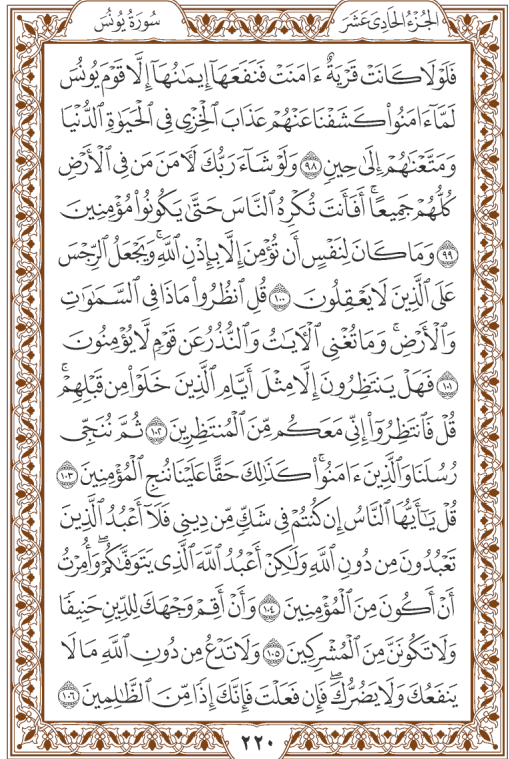 الجُزْءُ الحَادِي عَشَرَ
سُورَةُ يُونُس
فَلَوْلَا كَانَتْ قَرْيَةٌ ءَامَنَتْ فَنَفَعَهَآ إِيمَٰنُهَآ إِلَّا قَوْمَ يُونُسَ
لَمَّآ ءَامَنُوا۟ كَشَفْنَا عَنْهُمْ عَذَابَ ٱلْخِزْىِ فِى ٱلْحَيَوٰةِ ٱلدُّنْيَا
وَمَتَّعْنَٰهُمْ إِلَىٰ حِينٍ ٩٨ وَلَوْ شَآءَ رَبُّكَ لَـَٔامَنَ مَن فِى ٱلْأَرْضِ
كُلُّهُمْ جَمِيعًا ۚ أَفَأَنتَ تُكْرِهُ ٱلنَّاسَ حَتَّىٰ يَكُونُوا۟ مُؤْمِنِينَ
٩٩ وَمَا كَانَ لِنَفْسٍ أَن تُؤْمِنَ إِلَّا بِإِذْنِ ٱللَّهِ ۚ وَيَجْعَلُ ٱلرِّجْسَ
عَلَى ٱلَّذِينَ لَا يَعْقِلُونَ ١٠٠ قُلِ ٱنظُرُوا۟ مَاذَا فِى ٱلسَّمَٰوَٰتِ
وَٱلْأَرْضِ ۚ وَمَا تُغْنِى ٱلْـَٔايَٰتُ وَٱلنُّذُرُ عَن قَوْمٍ لَّا يُؤْمِنُونَ
١٠١ فَهَلْ يَنتَظِرُونَ إِلَّا مِثْلَ أَيَّامِ ٱلَّذِينَ خَلَوْا۟ مِن قَبْلِهِمْ ۚ
قُلْ فَٱنتَظِرُوٓا۟ إِنِّى مَعَكُم مِّنَ ٱلْمُنتَظِرِينَ ١٠٢ ثُمَّ نُنَجِّى
رُسُلَنَا وَٱلَّذِينَ ءَامَنُوا۟ ۚ كَذَٰلِكَ حَقًّا عَلَيْنَا نُنجِ ٱلْمُؤْمِنِينَ ١٠٣
قُلْ يَٰٓأَيُّهَا ٱلنَّاسُ إِن كُنتُمْ فِى شَكٍّ مِّن دِينِى فَلَآ أَعْبُدُ ٱلَّذِينَ
تَعْبُدُونَ مِن دُونِ ٱللَّهِ وَلَٰكِنْ أَعْبُدُ ٱللَّهَ ٱلَّذِى يَتَوَفَّىٰكُمْ ۖ وَأُمِرْتُ
أَنْ أَكُونَ مِنَ ٱلْمُؤْمِنِينَ ١٠٤ وَأَنْ أَقِمْ وَجْهَكَ لِلدِّينِ حَنِيفًا
وَلَا تَكُونَنَّ مِنَ ٱلْمُشْرِكِينَ ١٠٥ وَلَا تَدْعُ مِن دُونِ ٱللَّهِ مَا لَا
يَنفَعُكَ وَلَا يَضُرُّكَ ۖ فَإِن فَعَلْتَ فَإِنَّكَ إِذًا مِّنَ ٱلظَّٰلِمِينَ ١٠٦
٢٢٠